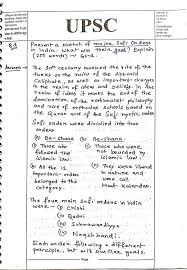 UPSC
Q.1
Present a sketch of major Sufi Orders
in India. What was their goal? Explain
(250 words)
Answer
The 10th century marked the rise of the
Turks on the ruins of the Abbasid
Caliphate, as well as important changes
in the realm of ideas and beliefs. In the
realm of ideas it marks the end of the
domination of the rationalist philosophy
and rise of orthodox schools based on
the Quran and of the Sufi mystic orders
Sufi orders were divided into two
orders
Ba-Shara
Be-Shara
Those who
followed the
Islamic law.
Those who were
not bounded by
Islamic law.
All the 12
important orders
belonged to the
category.
They were liberal
in nature and
were called
Mast Kalandar.
The four main Sufi orders in India
were - (i) Chisti
(ii) Qadri
(iii) Suhrawardiyya
(iv) Naqshbandi.
Each order following a different
principle, but will similar goals.